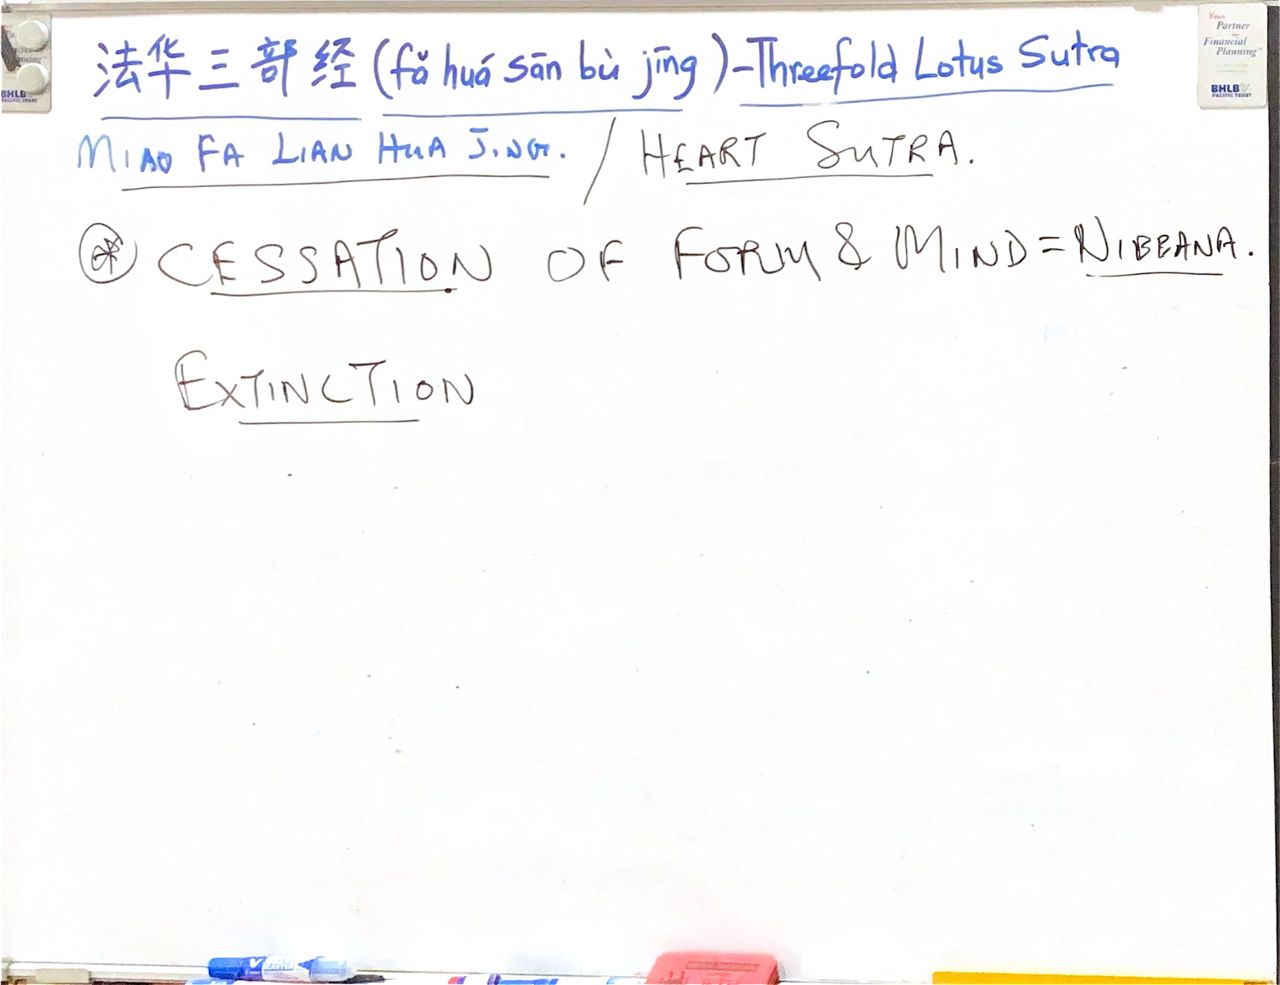 法华三部经(fǎ huá sān bù jīng)-Threefold Lotus Sutra
MIAO FA LIAN HUA JING. / HEART SUTRA.
* CESSATION OF FORM & MIND = NIBBANA.
EXTINCTION
Your
Partner
in
Financial
Planning
BHLB
PACIFIC TRUST
BHLB
PACIFIC TRUST